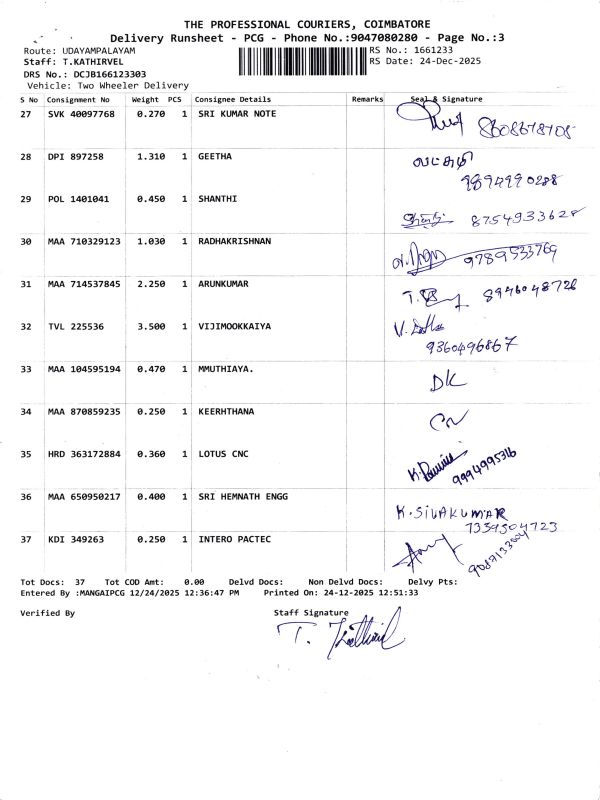 THE PROFESSIONAL COURIERS, COIMBATORE
Delivery Runsheet - PCG - Phone No.:9047080280 - Page No.:3
Route: UDAYAMPALAYAM
RS No.: 1661233
Staff: T.KATHIRVEL
RS Date: 24-Dec-2025
DRS No.: DCJB166123303
Vehicle: Two Wheeler Delivery
S No Consignment No Weight PCS Consignee Details Remarks Seal & Signature
27 SVK 40097768 0.270 1 SRI KUMAR NOTE
28 DPI 897258 1.310 1 GEETHA
9894990288
29 POL 1401041 0.450 1 SHANTHI 8754933628
30 MAA 710329123 1.030 1 RADHAKRISHNAN 9789533769
31 MAA 714537845 2.250 1 ARUNKUMAR 8946048726
32 TVL 225536 3.500 1 VIJIMOOKKAIYA
9360496867
33 MAA 104595194 0.470 1 MMUTHIAYA. DK
34 MAA 870859235 0.250 1 KEERHTHANA
35 HRD 363172884 0.360 1 LOTUS CNC 9994995316
36 MAA 650950217 0.400 1 SRI HEMNATH ENGG K.SIVAKUMAR
7339504723
37 KDI 349263 0.250 1 INTERO PACTEC
Tot Docs: 37 Tot COD Amt: 0.00 Delvd Docs: Non Delvd Docs: Delvy Pts:
Entered By :MANGAIPCG 12/24/2025 12:36:47 PM Printed On: 24-12-2025 12:51:33
Verified By Staff Signature